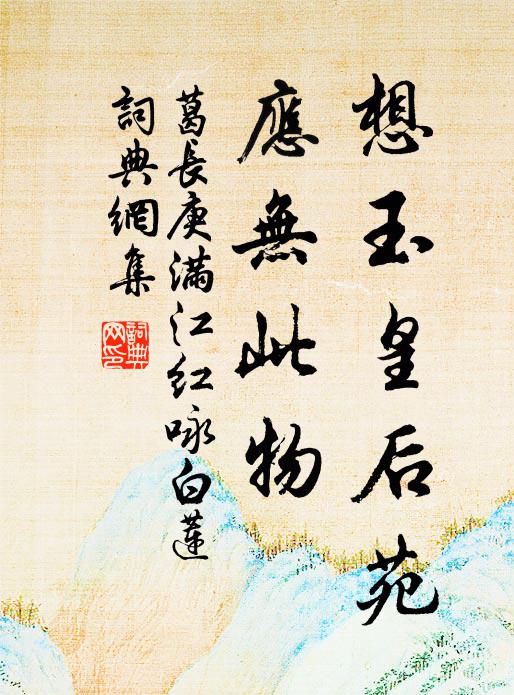 想玉皇后苑
應無此物
葛長庚滿江紅咏白蓮
詞典網集
詞典網印